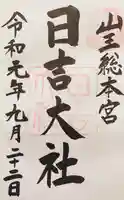 山王総本宮
日吉大社
令和元年九月二十二日